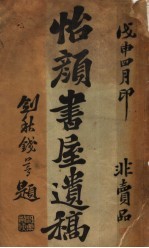 戊申四月印
非賣品
怡顏書屋遺稿
劉秋鐵署題